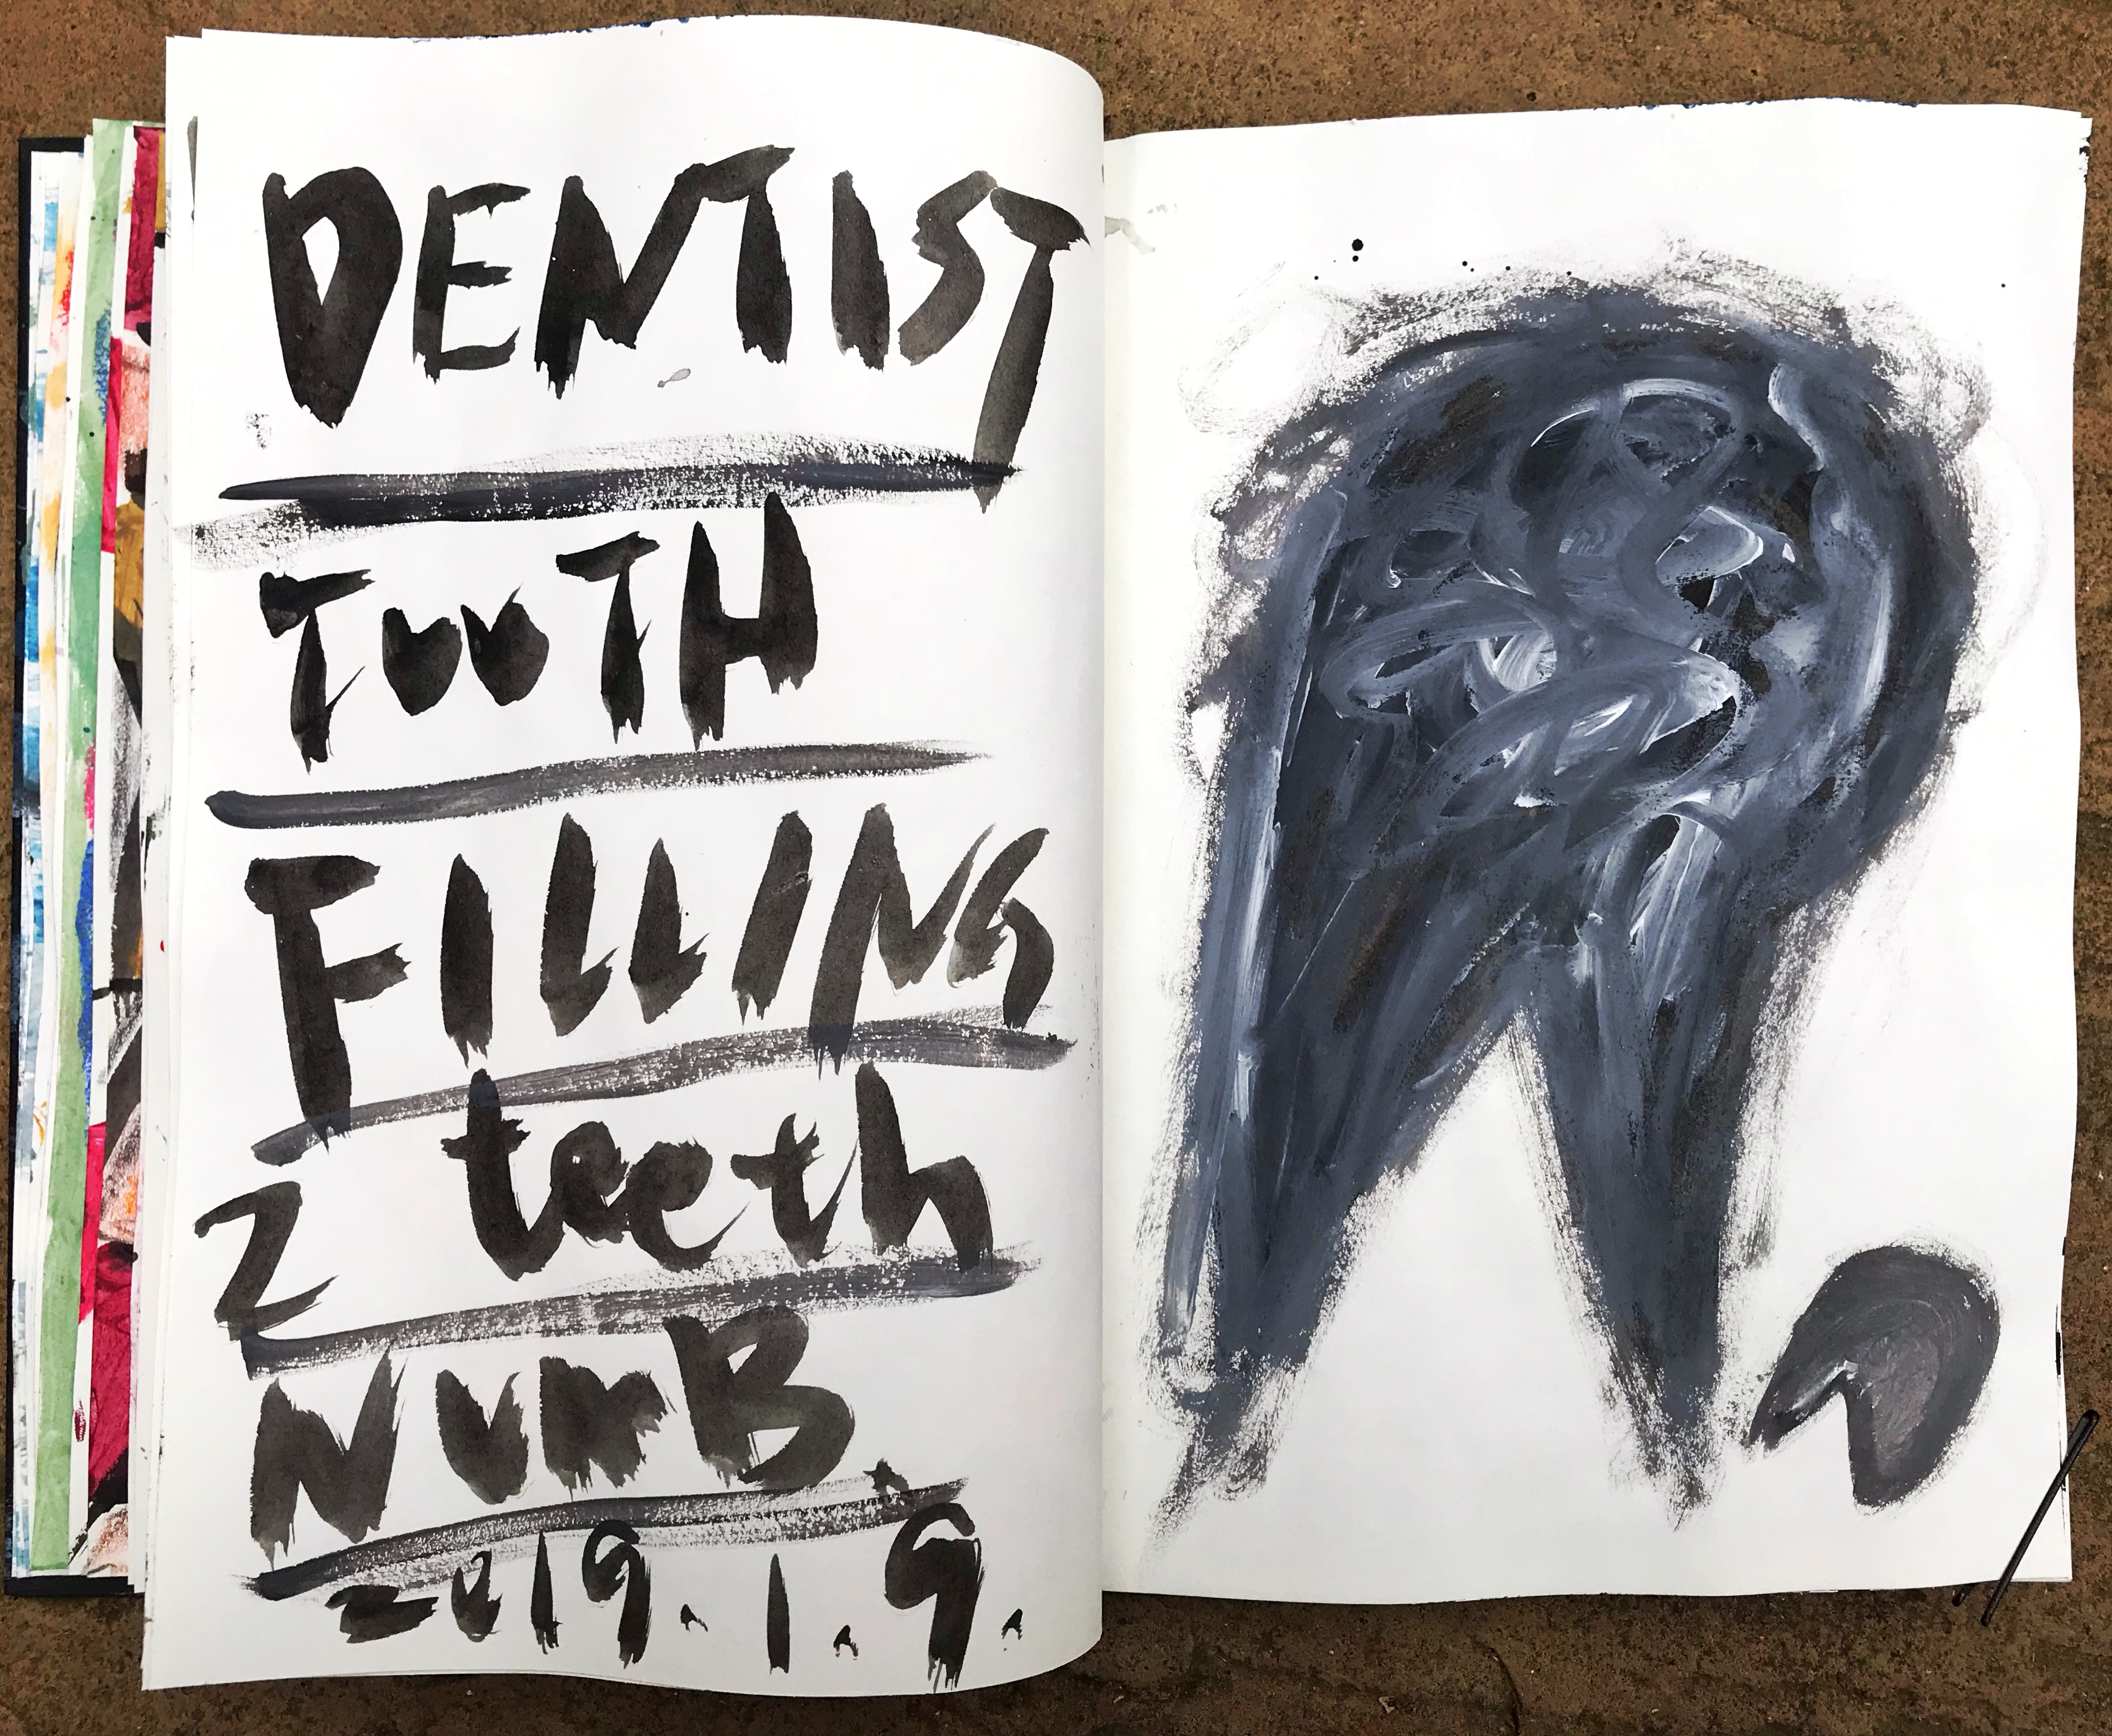 DENTIST
TOOTH
FILLING
2 teeth
NUMB.
2019.1.9.